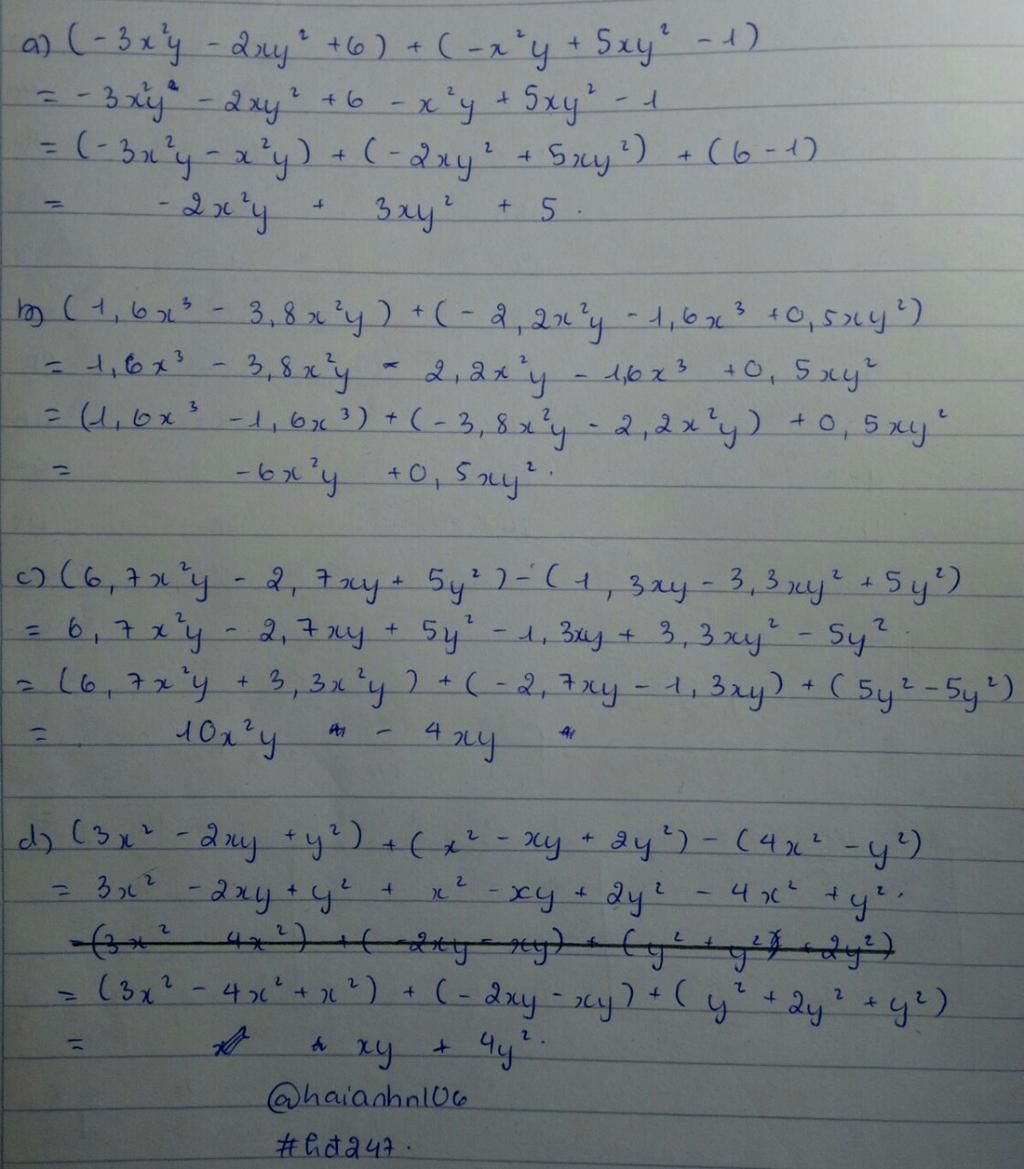 a) (-3x²y - 2xy² + 6) + (-x²y + 5xy² - 1)
= -3x²y - 2xy² + 6 - x²y + 5xy² - 1
= (-3x²y - x²y) + (-2xy² + 5xy²) + (6 - 1)
= -2x²y + 3xy² + 5.
b) (1,6x³ - 3,8x²y) + (-2,2x²y - 1,6x³ + 0,5xy²)
= 1,6x³ - 3,8x²y - 2,2x²y - 1,6x³ + 0,5xy²
= (1,6x³ - 1,6x³) + (-3,8x²y - 2,2x²y) + 0,5xy²
= -6x²y + 0,5xy².
c) (6,7x²y - 2,7xy + 5y²) - (1,3xy - 3,3xy² + 5y²)
= 6,7x²y - 2,7xy + 5y² - 1,3xy + 3,3xy² - 5y².
= (6,7x²y + 3,3x²y) + (-2,7xy - 1,3xy) + (5y² - 5y²)
= 10x²y - 4xy
d) (3x² - 2xy + y²) + (x² - xy + 2y²) - (4x² - y²)
= 3x² - 2xy + y² + x² - xy + 2y² - 4x² + y².
=(3x² - 4x²) + (-2xy - xy) + (y² + y² + 2y²)
= (3x² - 4x² + x²) + (-2xy - xy) + (y² + 2y² + y²)
= xy + 4y².
@haianhn106
#hd247.